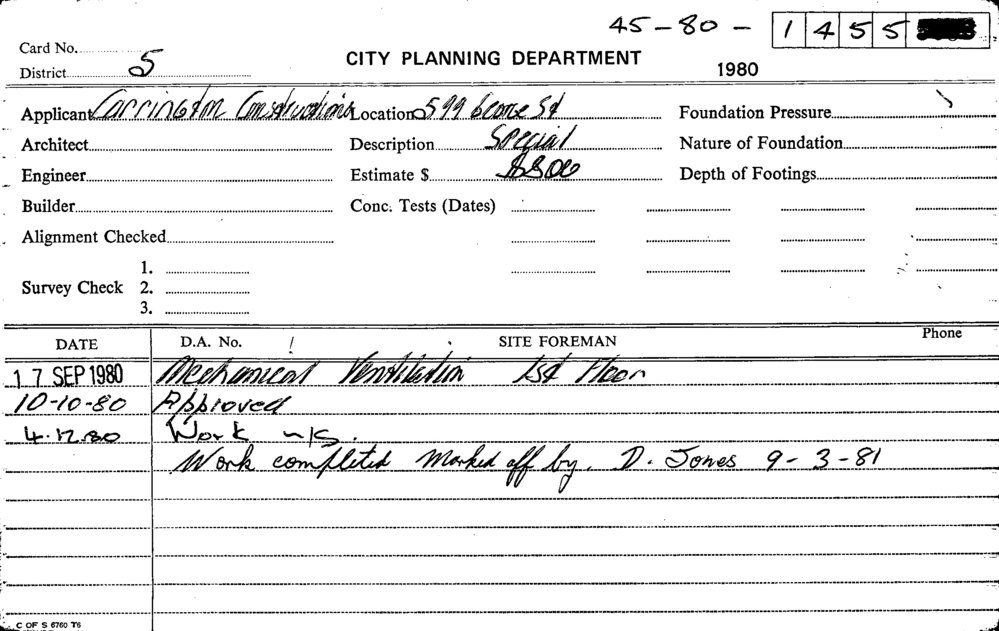 45-80- 1 4 5 5
Card No.
District 5
CITY PLANNING DEPARTMENT
1980
Applicant Carrington Constructions Location 599 George St Foundation Pressure
Architect Description Special Nature of Foundation
Engineer Estimate $ Depth of Footings
Builder Conc. Tests (Dates)
Alignment Checked
1.
Survey Check 2.
3.
DATE D.A. No. SITE FOREMAN Phone
17 SEP 1980 Mechanical Ventilation 1st Floor
10-10-80 Approved
4.12.80 Work n/s.
Work completed Marked off by. D. Jones 9-3-81
C OF S 6760 T6